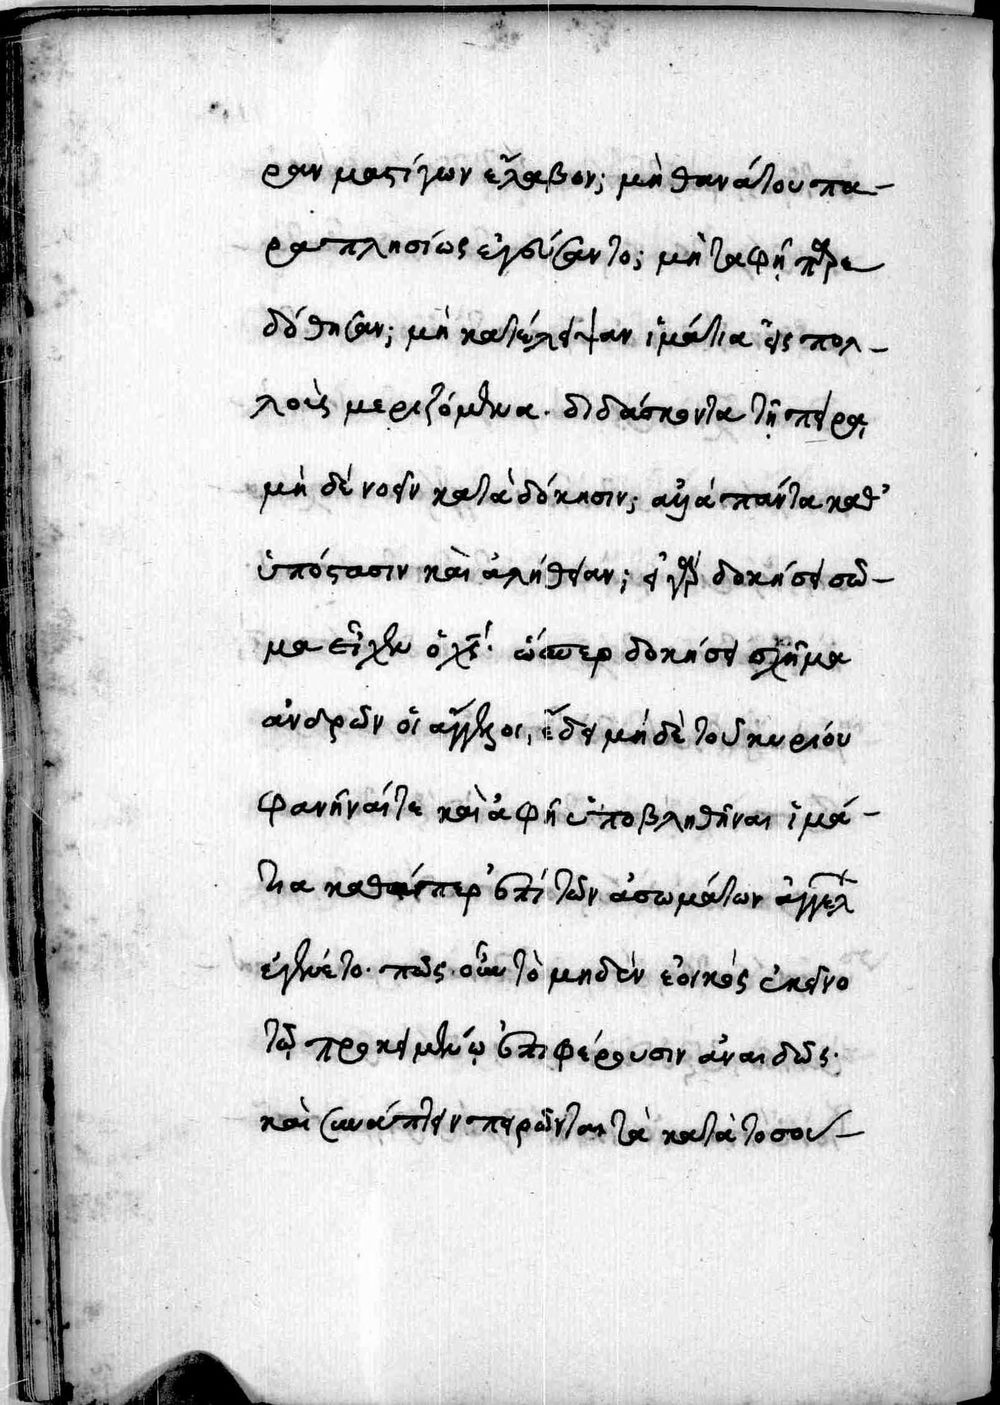 ραν μαστίγων ἔλαβον; μὴ θανάτου πα-
ραπλησίως ἐγεύσαντο; μὴ ταφῆ παρε
δόθησαν; μὴ κατέλειψαν ἱμάτια εἰς πολ-
λοὺς μεριζόμενα. διδάσκοντα τῇ πείρᾳ
μὴ δὲ νοεῖν κατὰ δόκησιν; ἀλλὰ πάντα καθ'
ὑπόστασιν καὶ ἀλήθειαν; εἰ γὰρ δοκήσει σῶ-
μα εἶχεν ὁ χς· ὥσπερ δοκήσει σχῆμα
ἀνδρῶν οἱ ἄγγελοι, ἔδει μὴ δὲ τοῦ κυρίου
φανῆναί τε καὶ ἀφῇ ὑποβληθῆναι ἱμά-
τια καθάπερ ἐπὶ τῶν ἀσωμάτων ἀγγέλ
ἐγένετο. πῶς οὖν τὸ μηδὲν ἐοικὸς ἐκεῖνο
τῷ προκειμένῳ ἐπιφέρουσιν ἀναιδῶς.
καὶ συνάπτειν πειρῶνται τὰ κατὰ τοσοῦ-